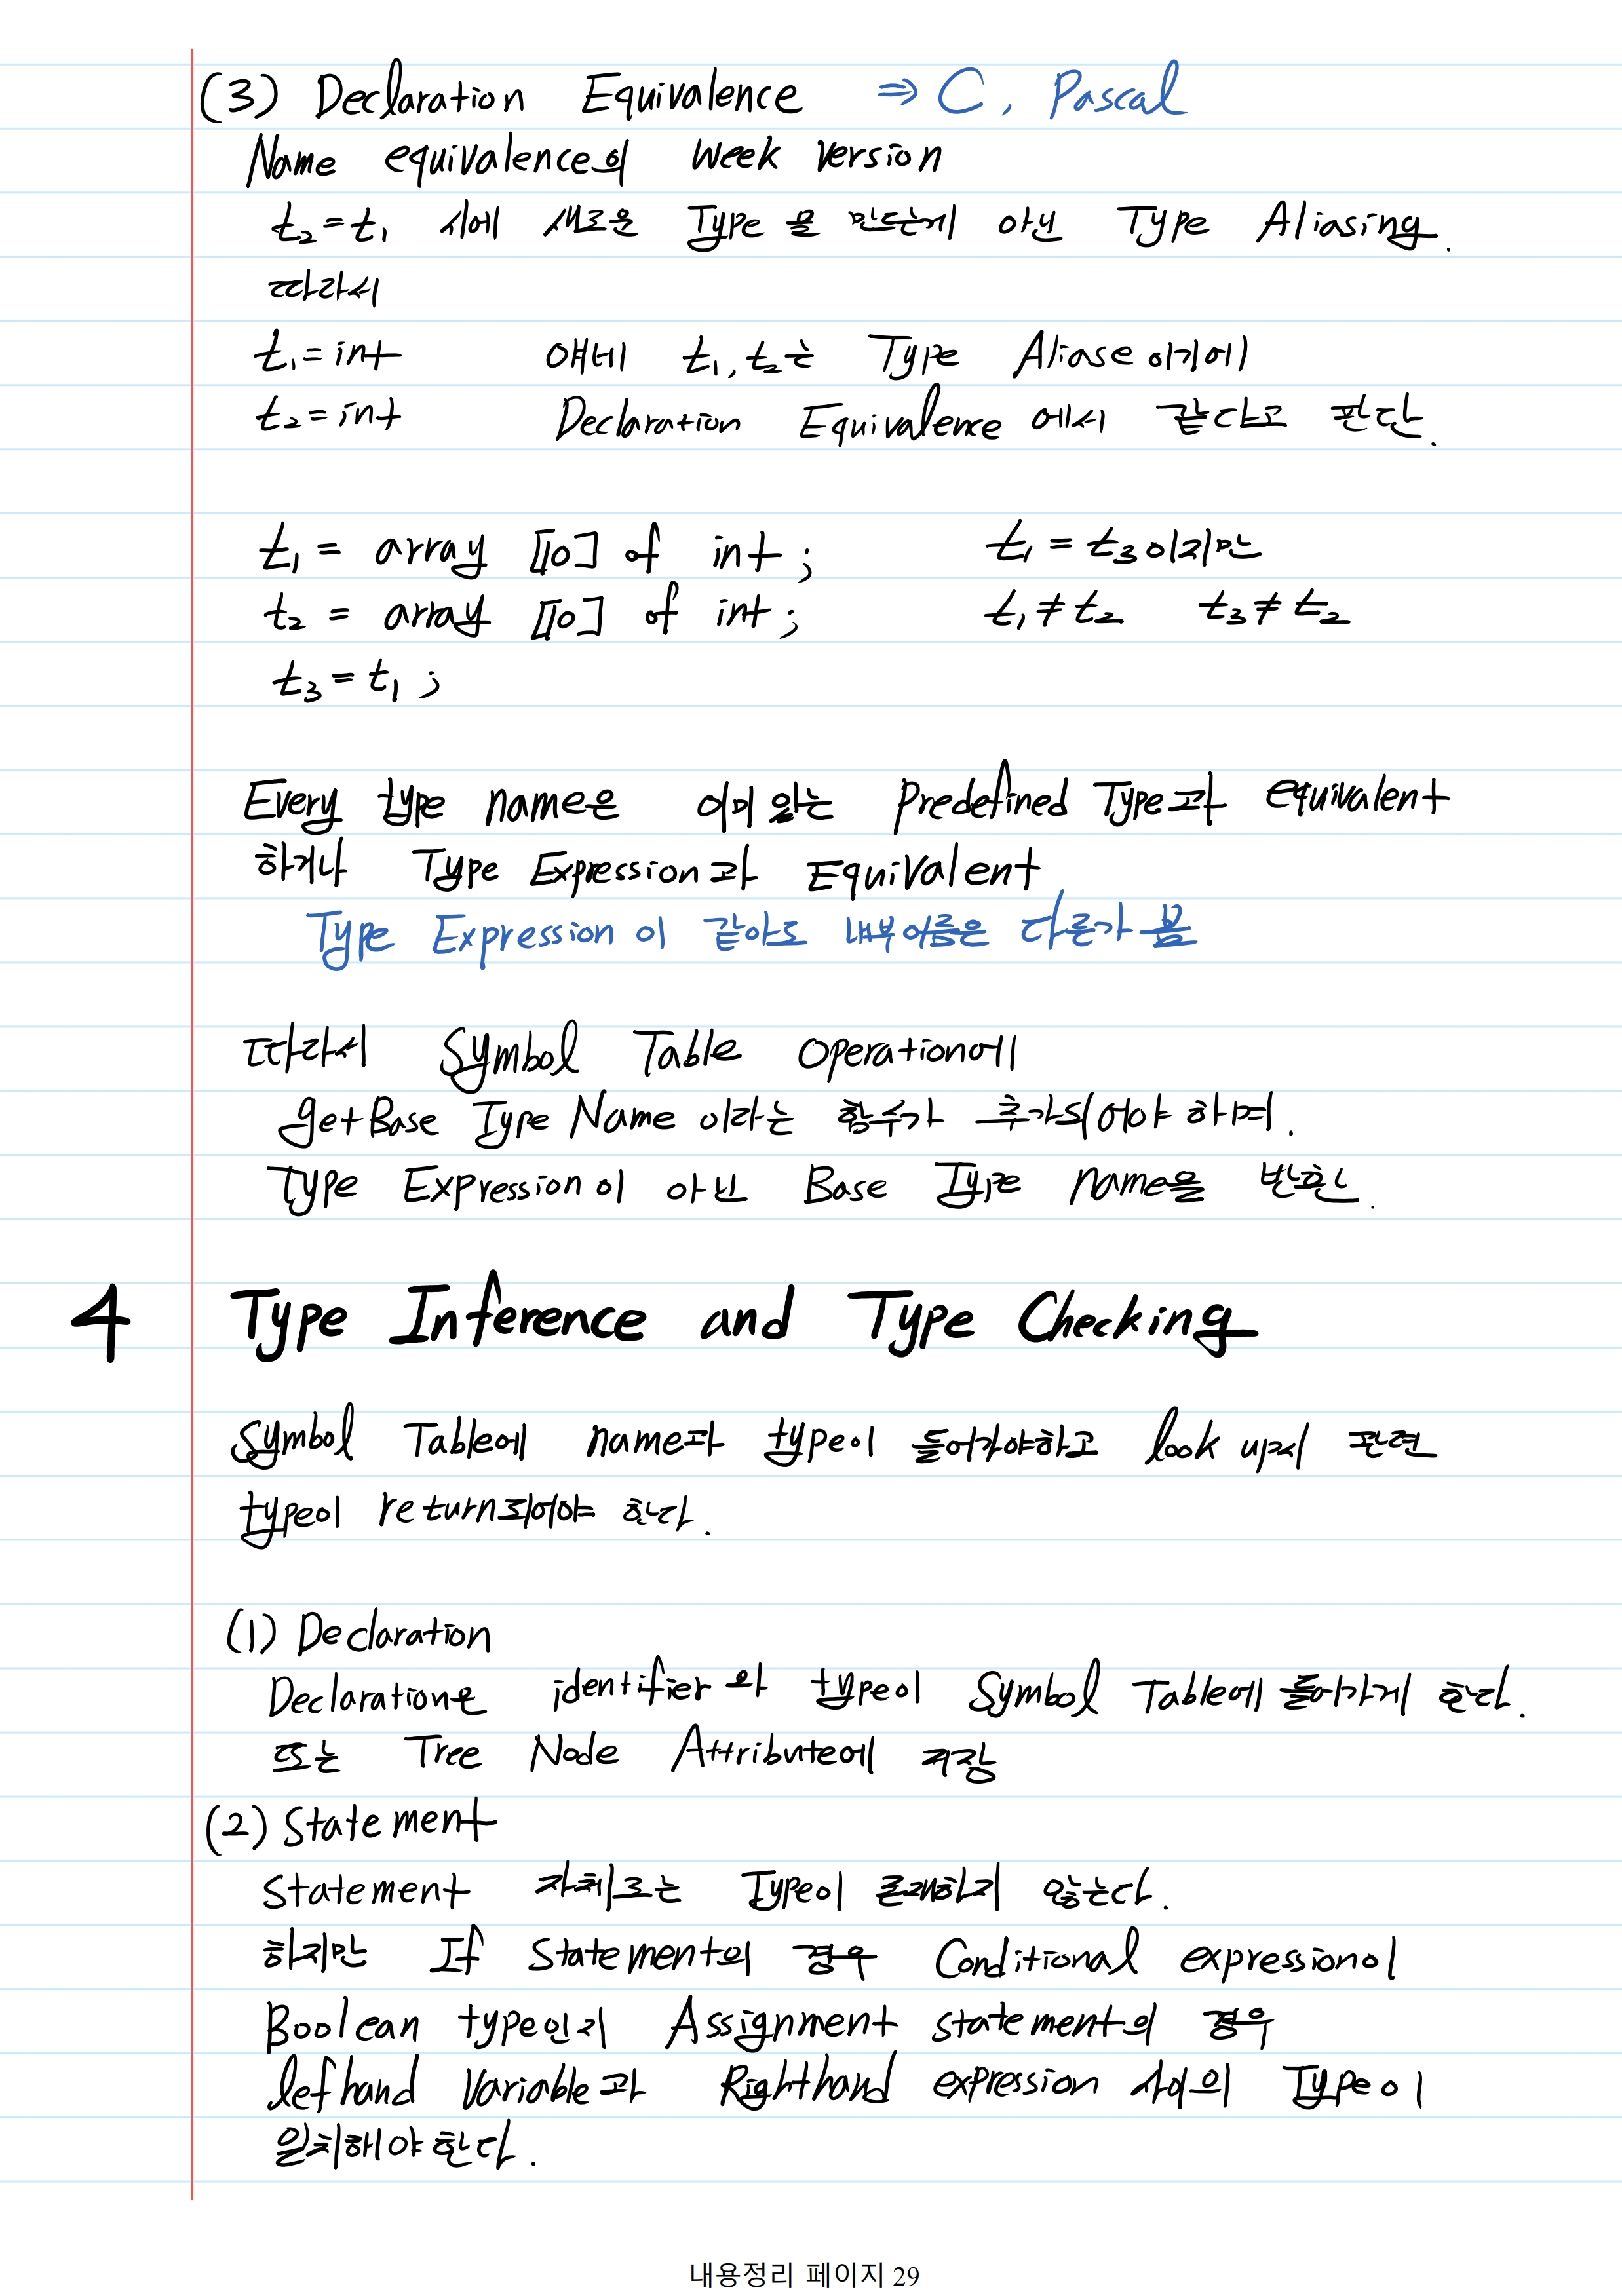 (3) Declaration Equivalence ⇒ C, Pascal
Name equivalence의 week version
t₂=t₁ 시에 새로운 Type을 만드는게 아닌 Type Aliasing.
따라서
t₁=int 얘네 t₁, t₂는 Type Aliase이기에
t₂=int Declaration Equivalence에서 같다고 판단.
t₁ = array [10] of int; t₁ = t₃이지만
t₂ = array [10] of int; t₁≠t₂ t₃≠t₂
t₃=t₁;
Every type name은 이미 있는 Predefined Type과 equivalent
하거나 Type Expression과 Equivalent
Type Expression이 같아도 내부이름은 다른가 봄
따라서 Symbol Table Operation에
getBase Type Name 이라는 함수가 추가되어야 하며.
Type Expression이 아닌 Base Type name을 반환.
4 Type Inference and Type Checking
Symbol Table에 name과 type이 들어가야하고 look up시 관련
type이 return되어야 한다.
(1) Declaration
Declaration은 identifier와 type이 Symbol Table에 들어가게 한다.
또는 Tree Node Attribute에 저장
(2) Statement
Statement 자체로는 Type이 존재하지 않는다.
하지만 If Statement의 경우 Conditional expression이
Boolean type인지 Assignment statement의 경우
lefhand Variable과 Righthand expression 사이의 Type이
일치해야한다.
내용정리 페이지 29